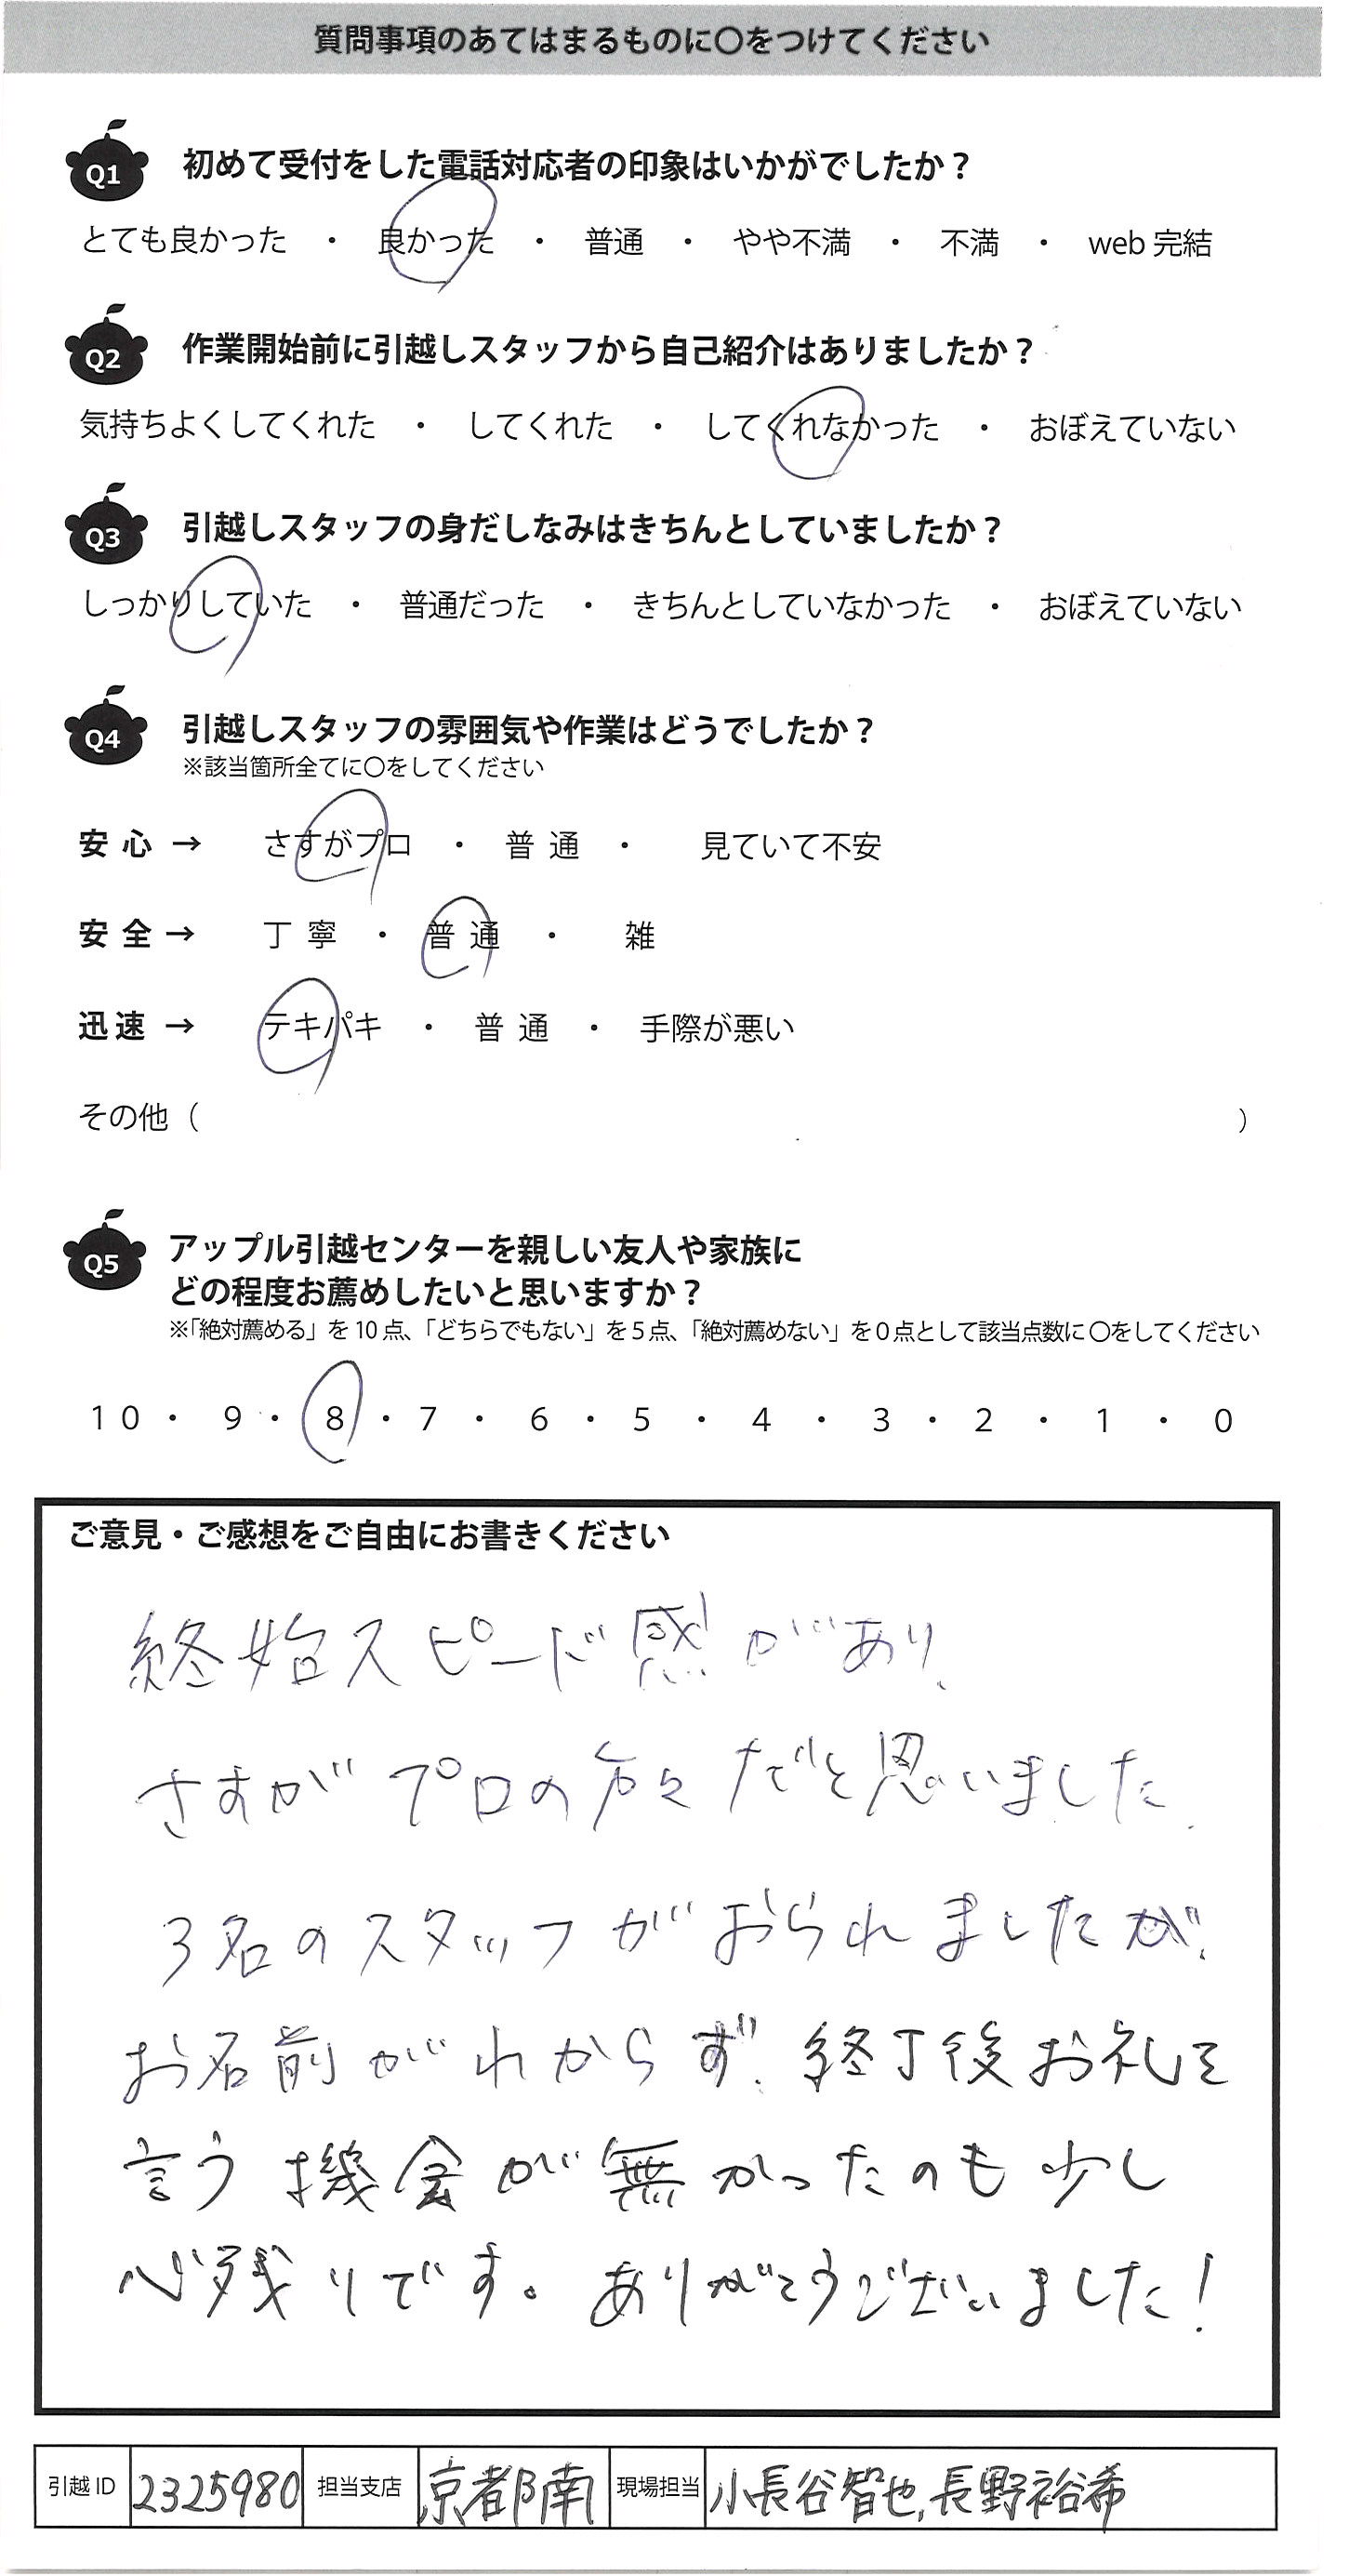 質問事項のあてはまるものに〇をつけてください
Q1 初めて受付をした電話対応者の印象はいかがでしたか？
とても良かった ・ 良かった ・ 普通 ・ やや不満 ・ 不満 ・ web 完結
Q2 作業開始前に引越しスタッフから自己紹介はありましたか？
気持ちよくしてくれた ・ してくれた ・ してくれなかった ・ おぼえていない
Q3 引越しスタッフの身だしなみはきちんとしていましたか？
しっかりしていた ・ 普通だった ・ きちんとしていなかった ・ おぼえていない
Q4 引越しスタッフの雰囲気や作業はどうでしたか？
※該当箇所全てに〇をしてください
安心 → さすがプロ ・ 普通 ・ 見ていて不安
安全 → 丁寧 ・ 普通 ・ 雑
迅速 → テキパキ ・ 普通 ・ 手際が悪い
その他（ ）
Q5 アップル引越センターを親しい友人や家族に
どの程度お薦めしたいと思いますか？
※「絶対薦める」を10点、「どちらでもない」を5点、「絶対薦めない」を0点として該当点数に〇をしてください
10 ・ 9 ・ 8 ・ 7 ・ 6 ・ 5 ・ 4 ・ 3 ・ 2 ・ 1 ・ 0
ご意見・ご感想をご自由にお書きください
終始スピード感があり、
さすがプロの方々だと思いました。
3名のスタッフがおられましたが、
お名前がわからず、終了後お礼を
言う機会が無かったのも少し
心残りです。ありがとうございました！
引越ID 2325980 担当支店 京都南 現場担当 小長谷智也,長野裕希